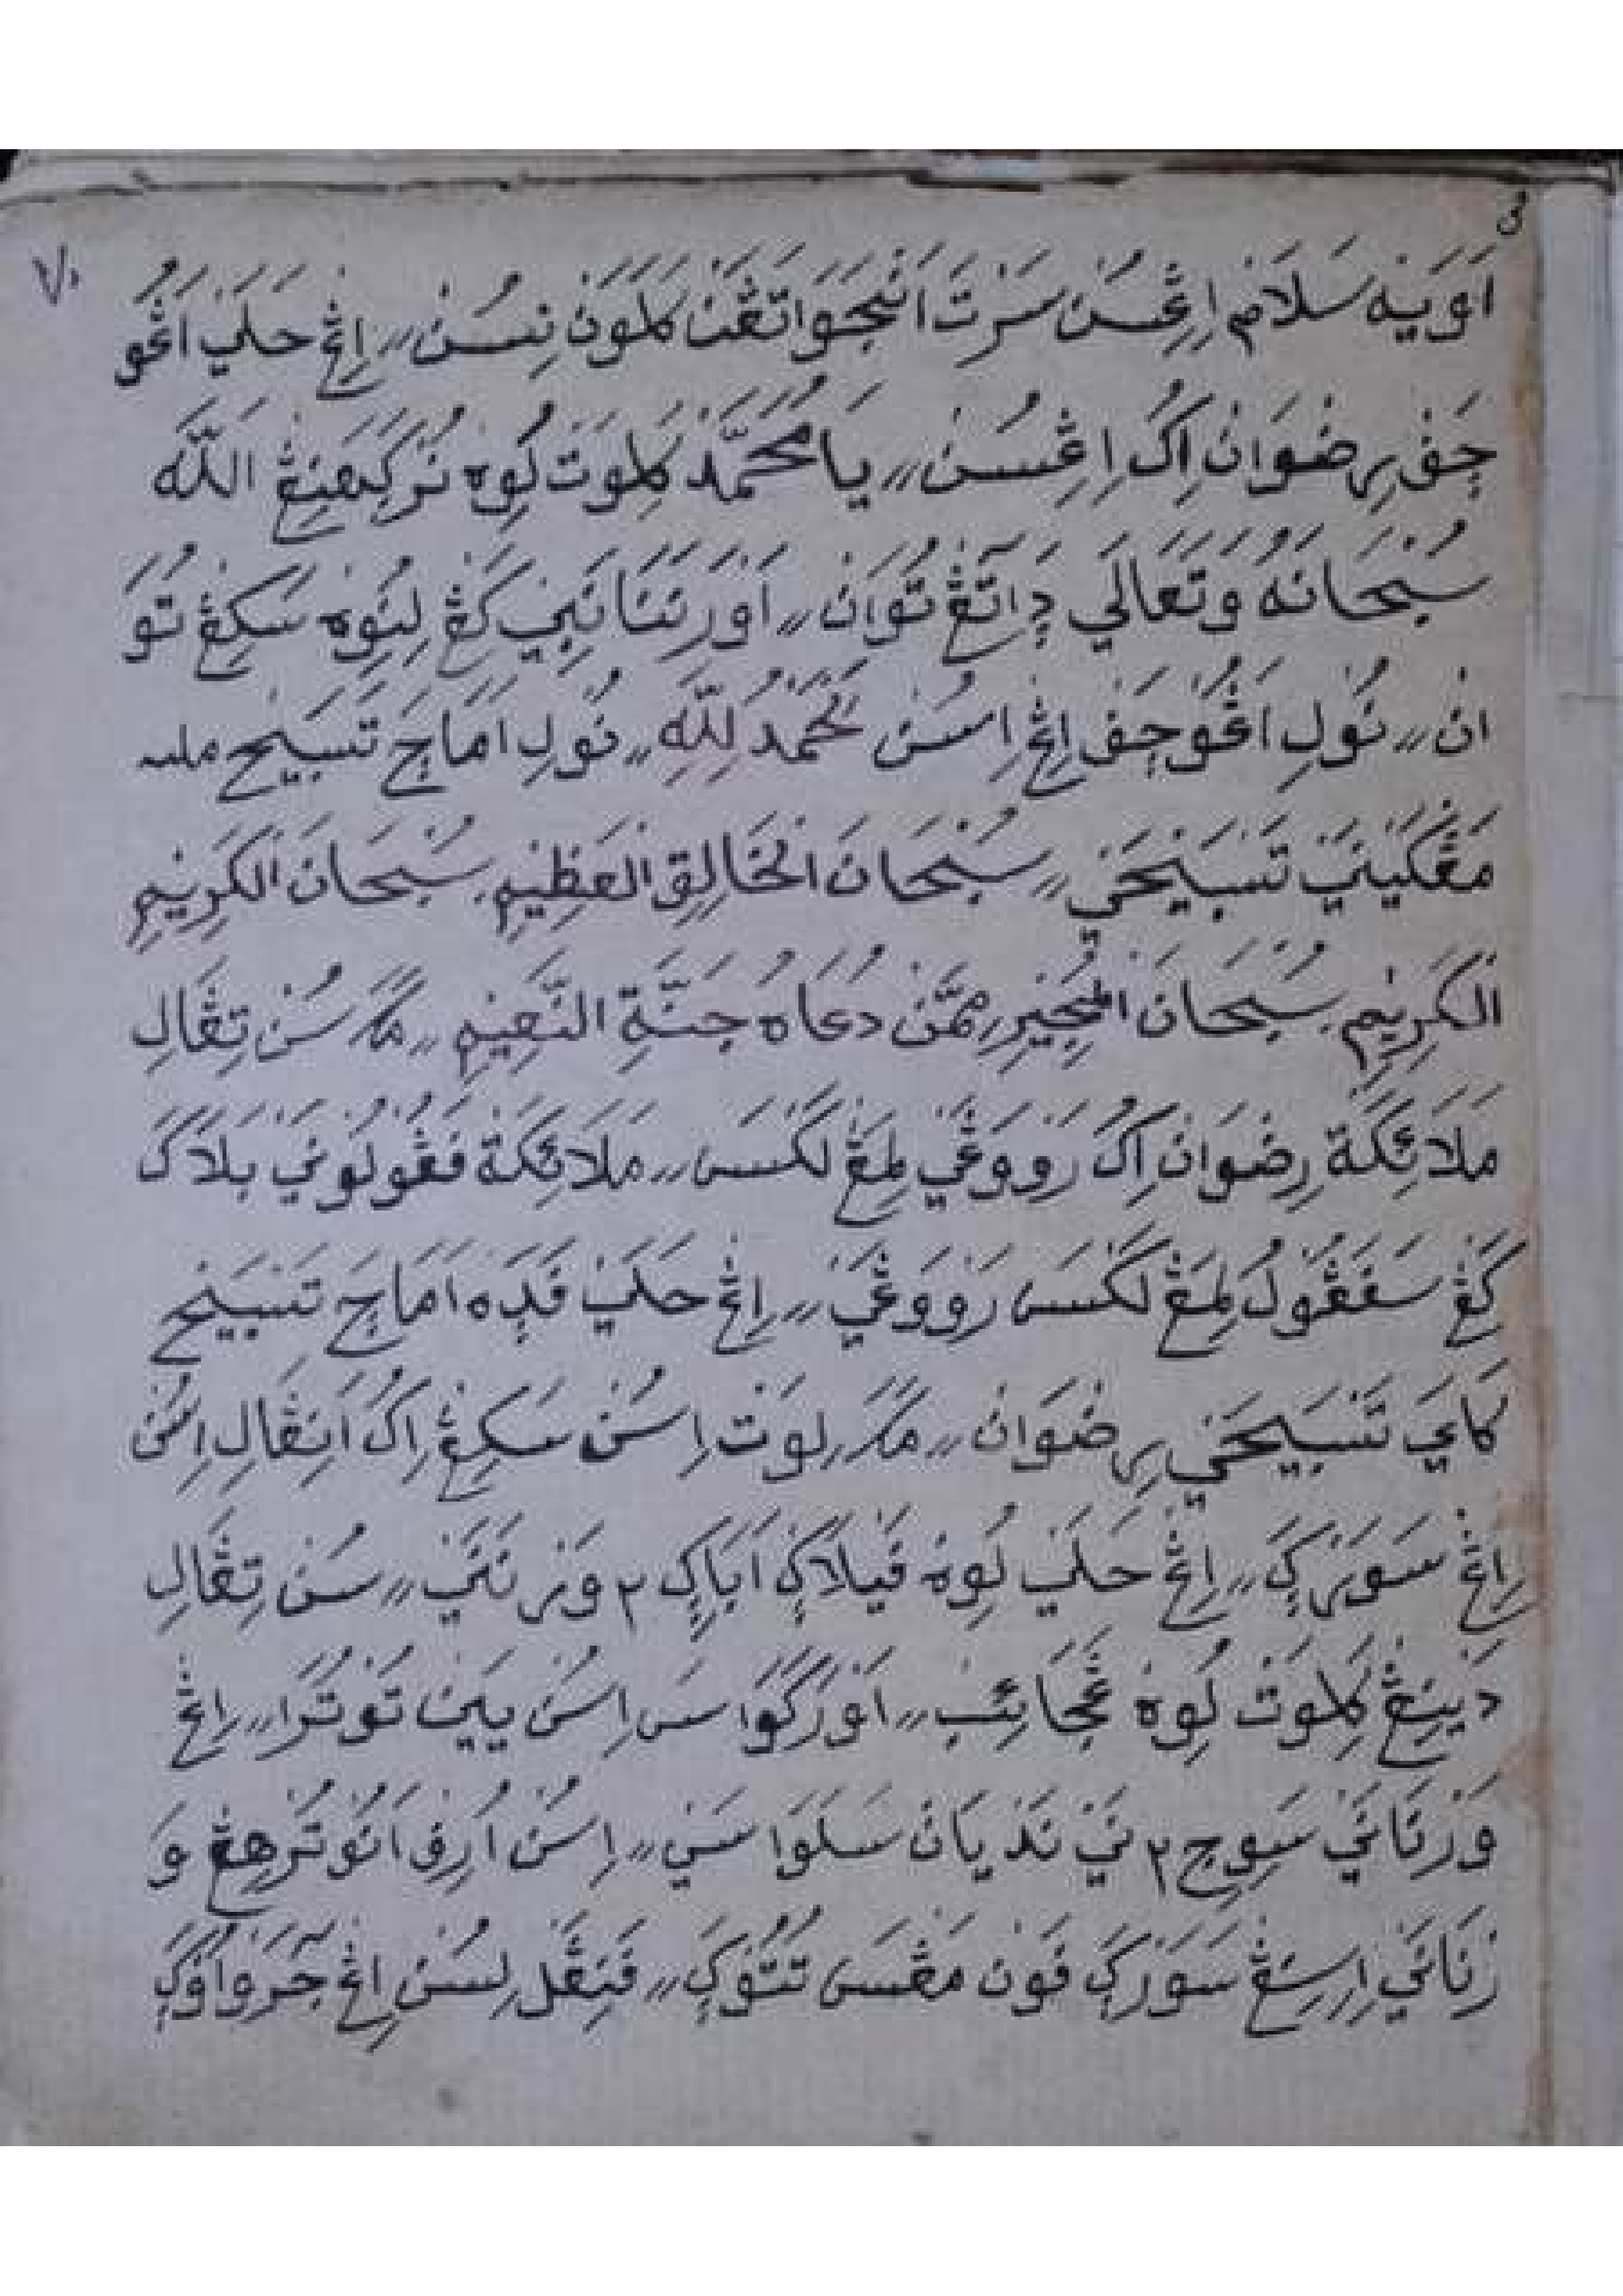 اَوَيَنْه سَلَامْ اِڠْسُنْ سَرْتَ اَنْجَوَاتَڠَنْ كَلَوَنْ نِسُنْ // اِڠْ حَلَيْ اَڠُو
چَفْ رِضْوَانْ اِكُ اِڠْسُنْ // يَا مُحَمَّدْ كَلِوَتْ لُوِه نُرَكَهَنِڠْ اللّٰه
سُبْحَانَهُ وَتَعَالَي دٓاتَڠْ تُوَانْ // اَوْرَنَنَا نَبِيْ كَڠْ لِنُوِه سَكِڠْ تُوَ
انْ // نُولِ اَڠُوچَفْ اِڠْ اِسُنْ لَحَمْدُ لِلّٰهِ // نُولِ اَمَاچَ تَسْبَيْح مليه
مَڠْكَيْنَيْ تَسْبَيْحَيْ // سُبْحَانَ الْخَالِقِ الْعَظِيْمِ سُبْحَانَ الْكَرِيْمِ
الْكَرِيْمِ سُبْحَانَ الْمُجِيْرِ مِمَّنْ دُعَاهُ جَنَّةِ النَّعِيْمِ // مَكَ سُنْ تِڠَالِ
مَلَائِكَةْ رِضْوَانْ اِكُ رَوْوَڠَيْ لِمَڠْ لَكْسَ // مَلَائِكَةْ فَڠُولُونَيْ بَلَاكَ
كَڠْ سَفَڠُولُ لِمَڠْ لَكْسَ رَوْوَڠَيْ // اِڠْ حَلَيْ فَدَه اَمَاچَ تَسْبَيْح
كَايَ تَسْبَيْحَيْ رِضْوَانْ // مَكَ لِوَتْ اِسُنْ سَكِڠْ اِكُ اَنِڠَالِ اِسُنْ
اِڠْ سَوَرْكَ // اِڠْ حَلَيْ لُوِه فَيْلَاكْ اَبَاكْ ٢ وَرْنَنَيْ // سُنْ تِڠَالِ
دَيْنِڠْ كَلِوَتْ لُوِه عَجَائِبْ // اَوْرَ كَوَاسَ اِسُنْ يَيْنْ تُوتُرَا // اِڠْ
وَرْنَانَيْ سَوِجِ ٢ نَيْ نَدْيَانْ سَلَوَاسَيْ // اِسُنْ اُرِفْ اَنُوتُرْهِڠْ وَ
رْنَانَيْ اِسِنِڠْ سَوَرْكَ فَوَنْ مَڠْسَ تُتُوكَ // فَنِڠَلِسُنْ اِڠْ جَرَوْ اَوَكْ